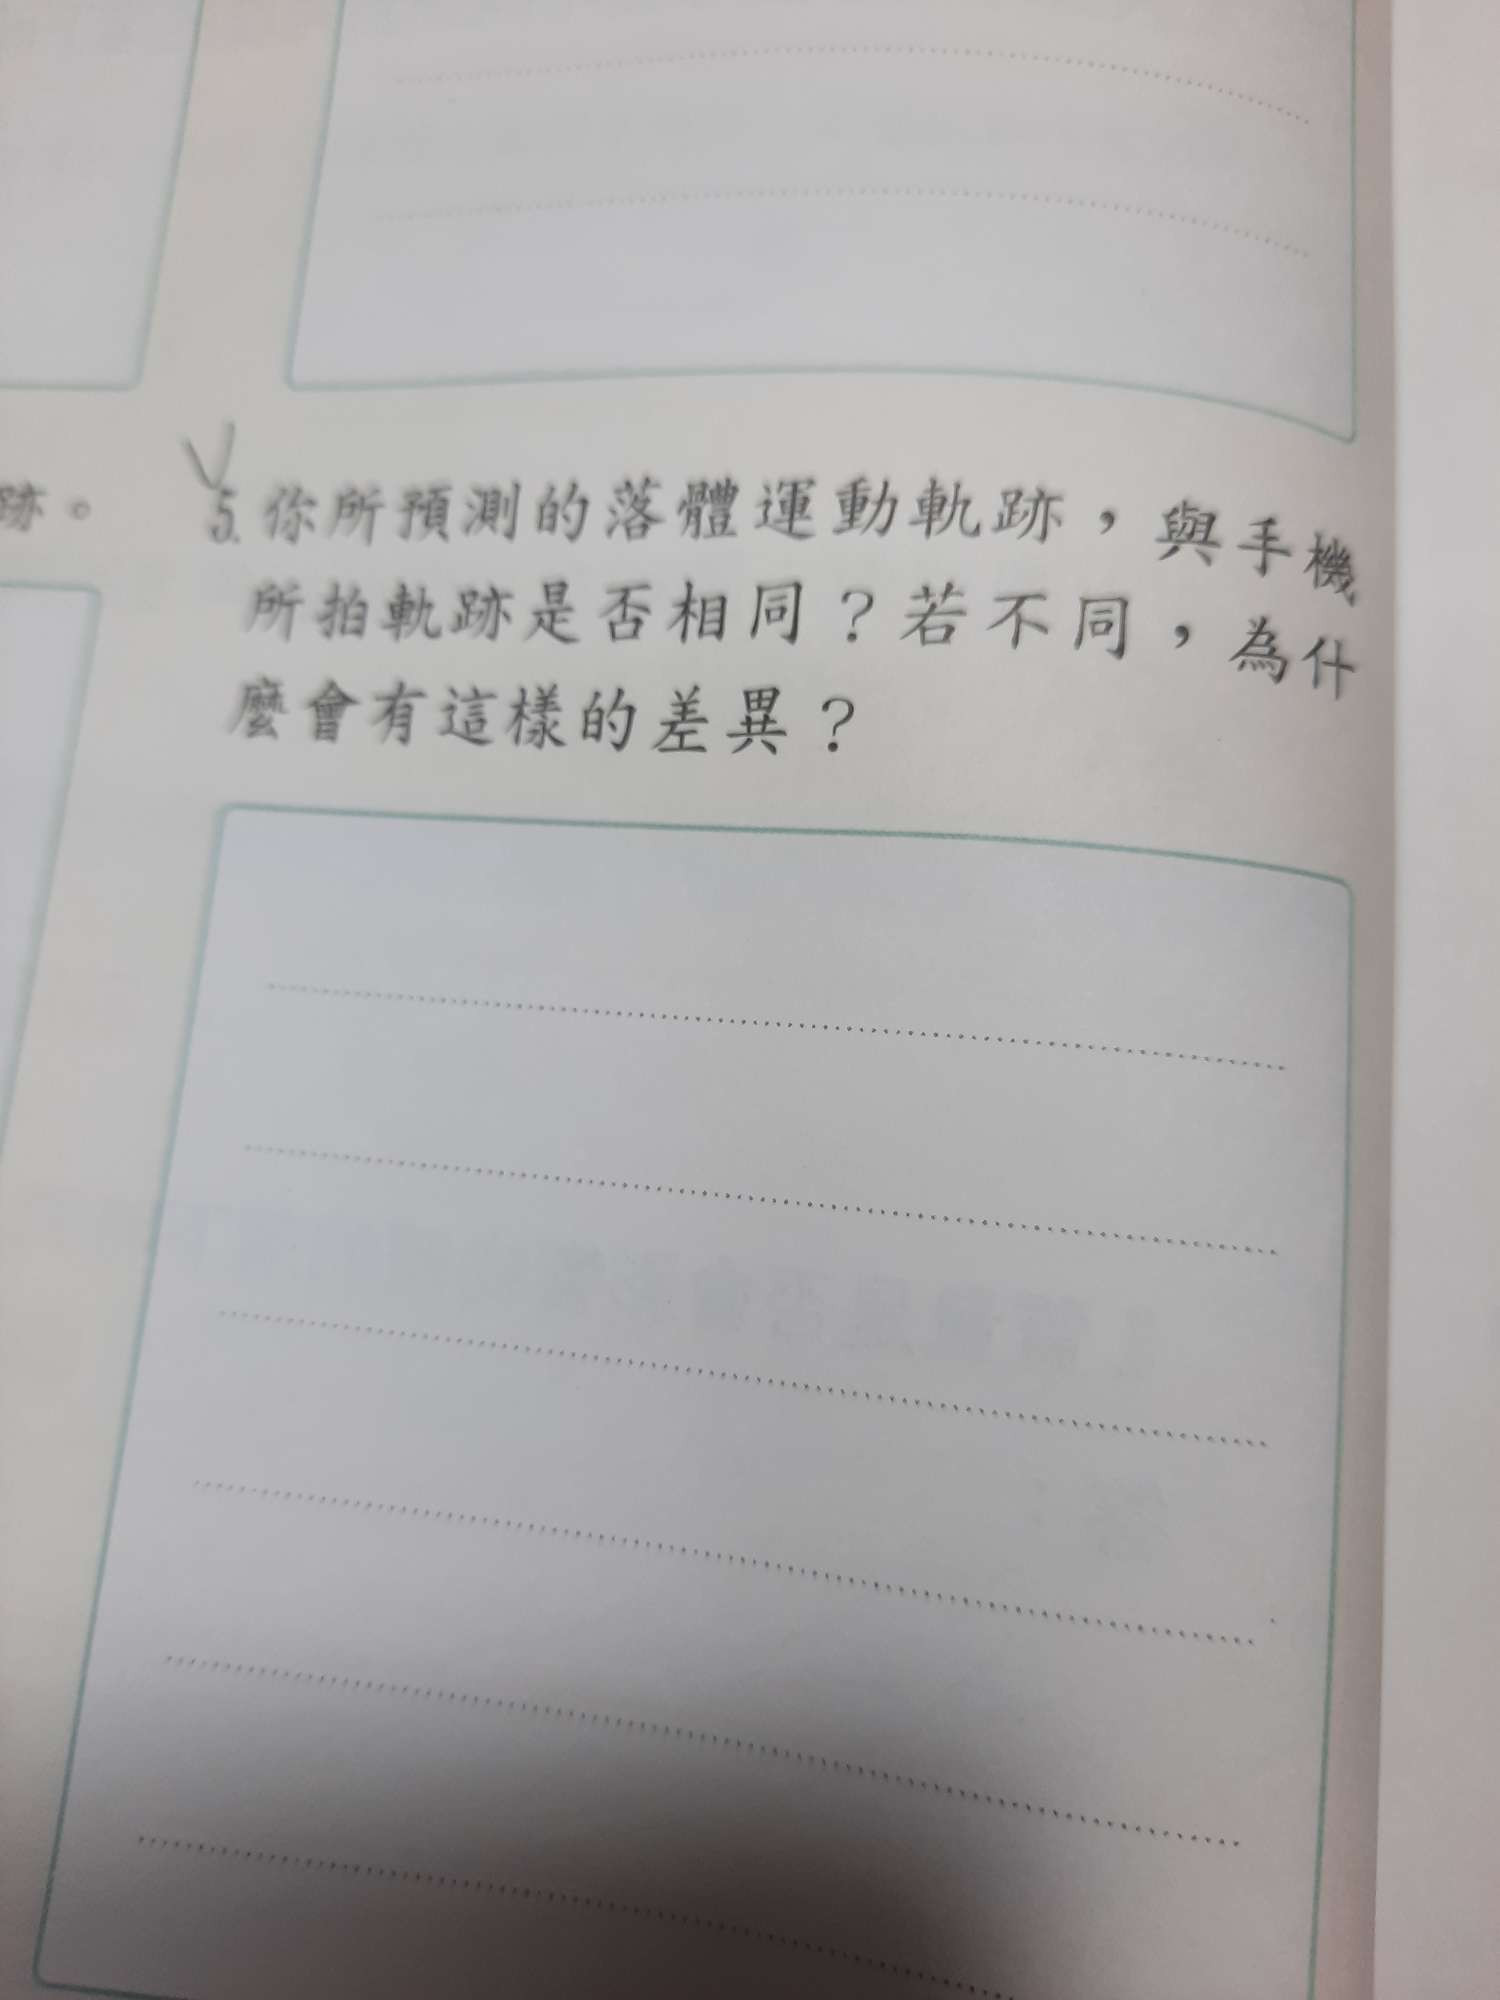 跡。
5. 你所預測的落體運動軌跡，與手機
所拍軌跡是否相同？若不同，為什
麼會有這樣的差異？